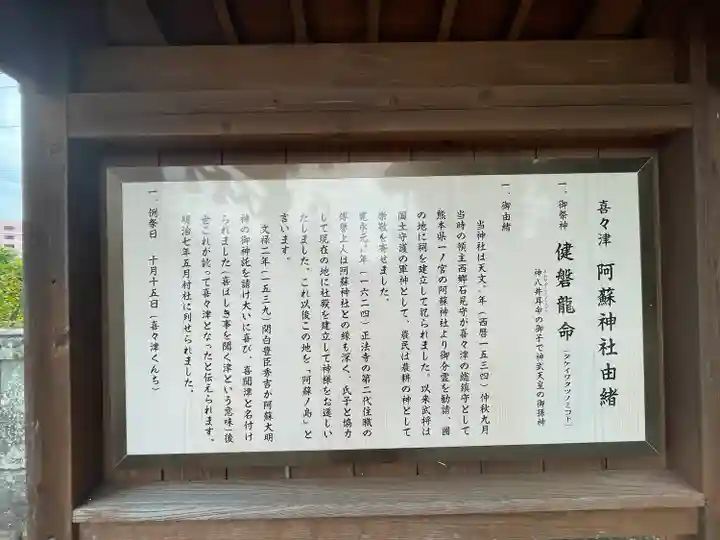 喜々津 阿蘇神社由緒
一、御祭神 健磐龍命(タケイワタツノミコト)
神八井耳命の御子で神武天皇の御孫神
一、御由緒
当神社は天文、年(西暦一五三四)仲秋九月
当時の領主西郷石見守が喜々津の総鎮守として
熊本県一ノ宮の阿蘇神社より御分霊を勧請、圀
の地に祠を建立して祀られました。以来武将は
国土守護の軍神として、農民は農耕の神として
崇敬を寄せました。
寛永元年(一六二四)正法寺の第二代住職の
傳譽上人は阿蘇神社との縁も深く、氏子と協力
して現在の地に社殿を建立して神様をお遷しい
たしました。これ以後この地を「阿蘇ノ島」と
言います。
文禄二年(一五三九)関白豊臣秀吉が阿蘇大明
神の御神託を請け大いに喜び、喜聞津と名付け
られました(喜ばしき事を聞く津という意味)後
世これが訛って喜々津となったと伝えられます。
明治七年五月村社に列せられました。
一、例祭日 十月十五日(喜々津くんち)